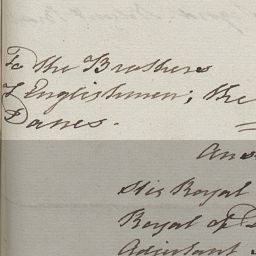 To the Brothers
of Englishmen; the
Danes.
Ans
His Royal
Royal of
Adjutant